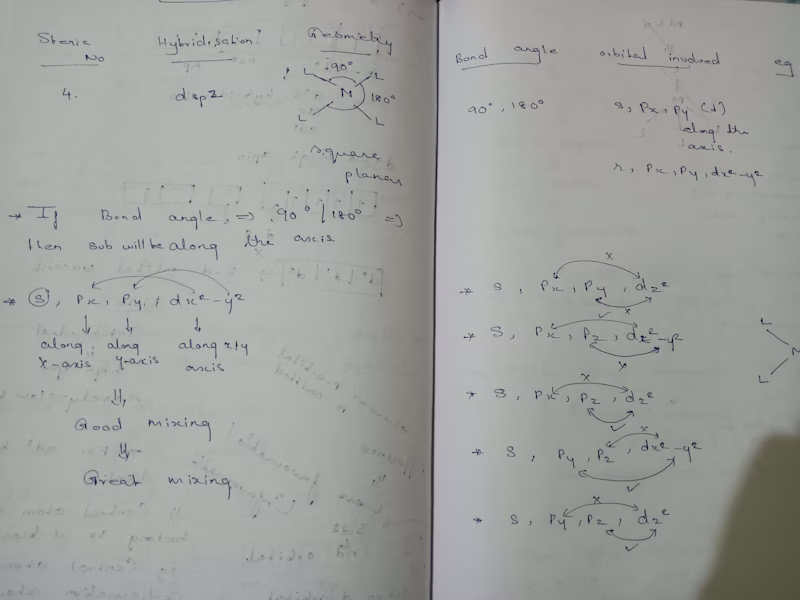 Steric No
Hybridisation
Geometry
4.
dsp2
90°
L L
M 180°
L L
square planar
* If Bond angle => 90° | 180° =>
then sub will be along the axis
* S, Px, Py, dx²-y²
along x-axis
along y-axis
along x+y axis
Good mixing
Great mixing
Bond angle
orbital involved
eg
90°, 180°
s, Px, Py (d)
along the axis.
s, Px, Py, dx²-y²
x
* S, Px, Py, dz²
x
* S, Px, Pz, dx²-y²
x
x
* S, Px, Pz, dz²
x
* S, Py, Pz, dx²-y²
x
* S, Py, Pz, dz²
L
M
L